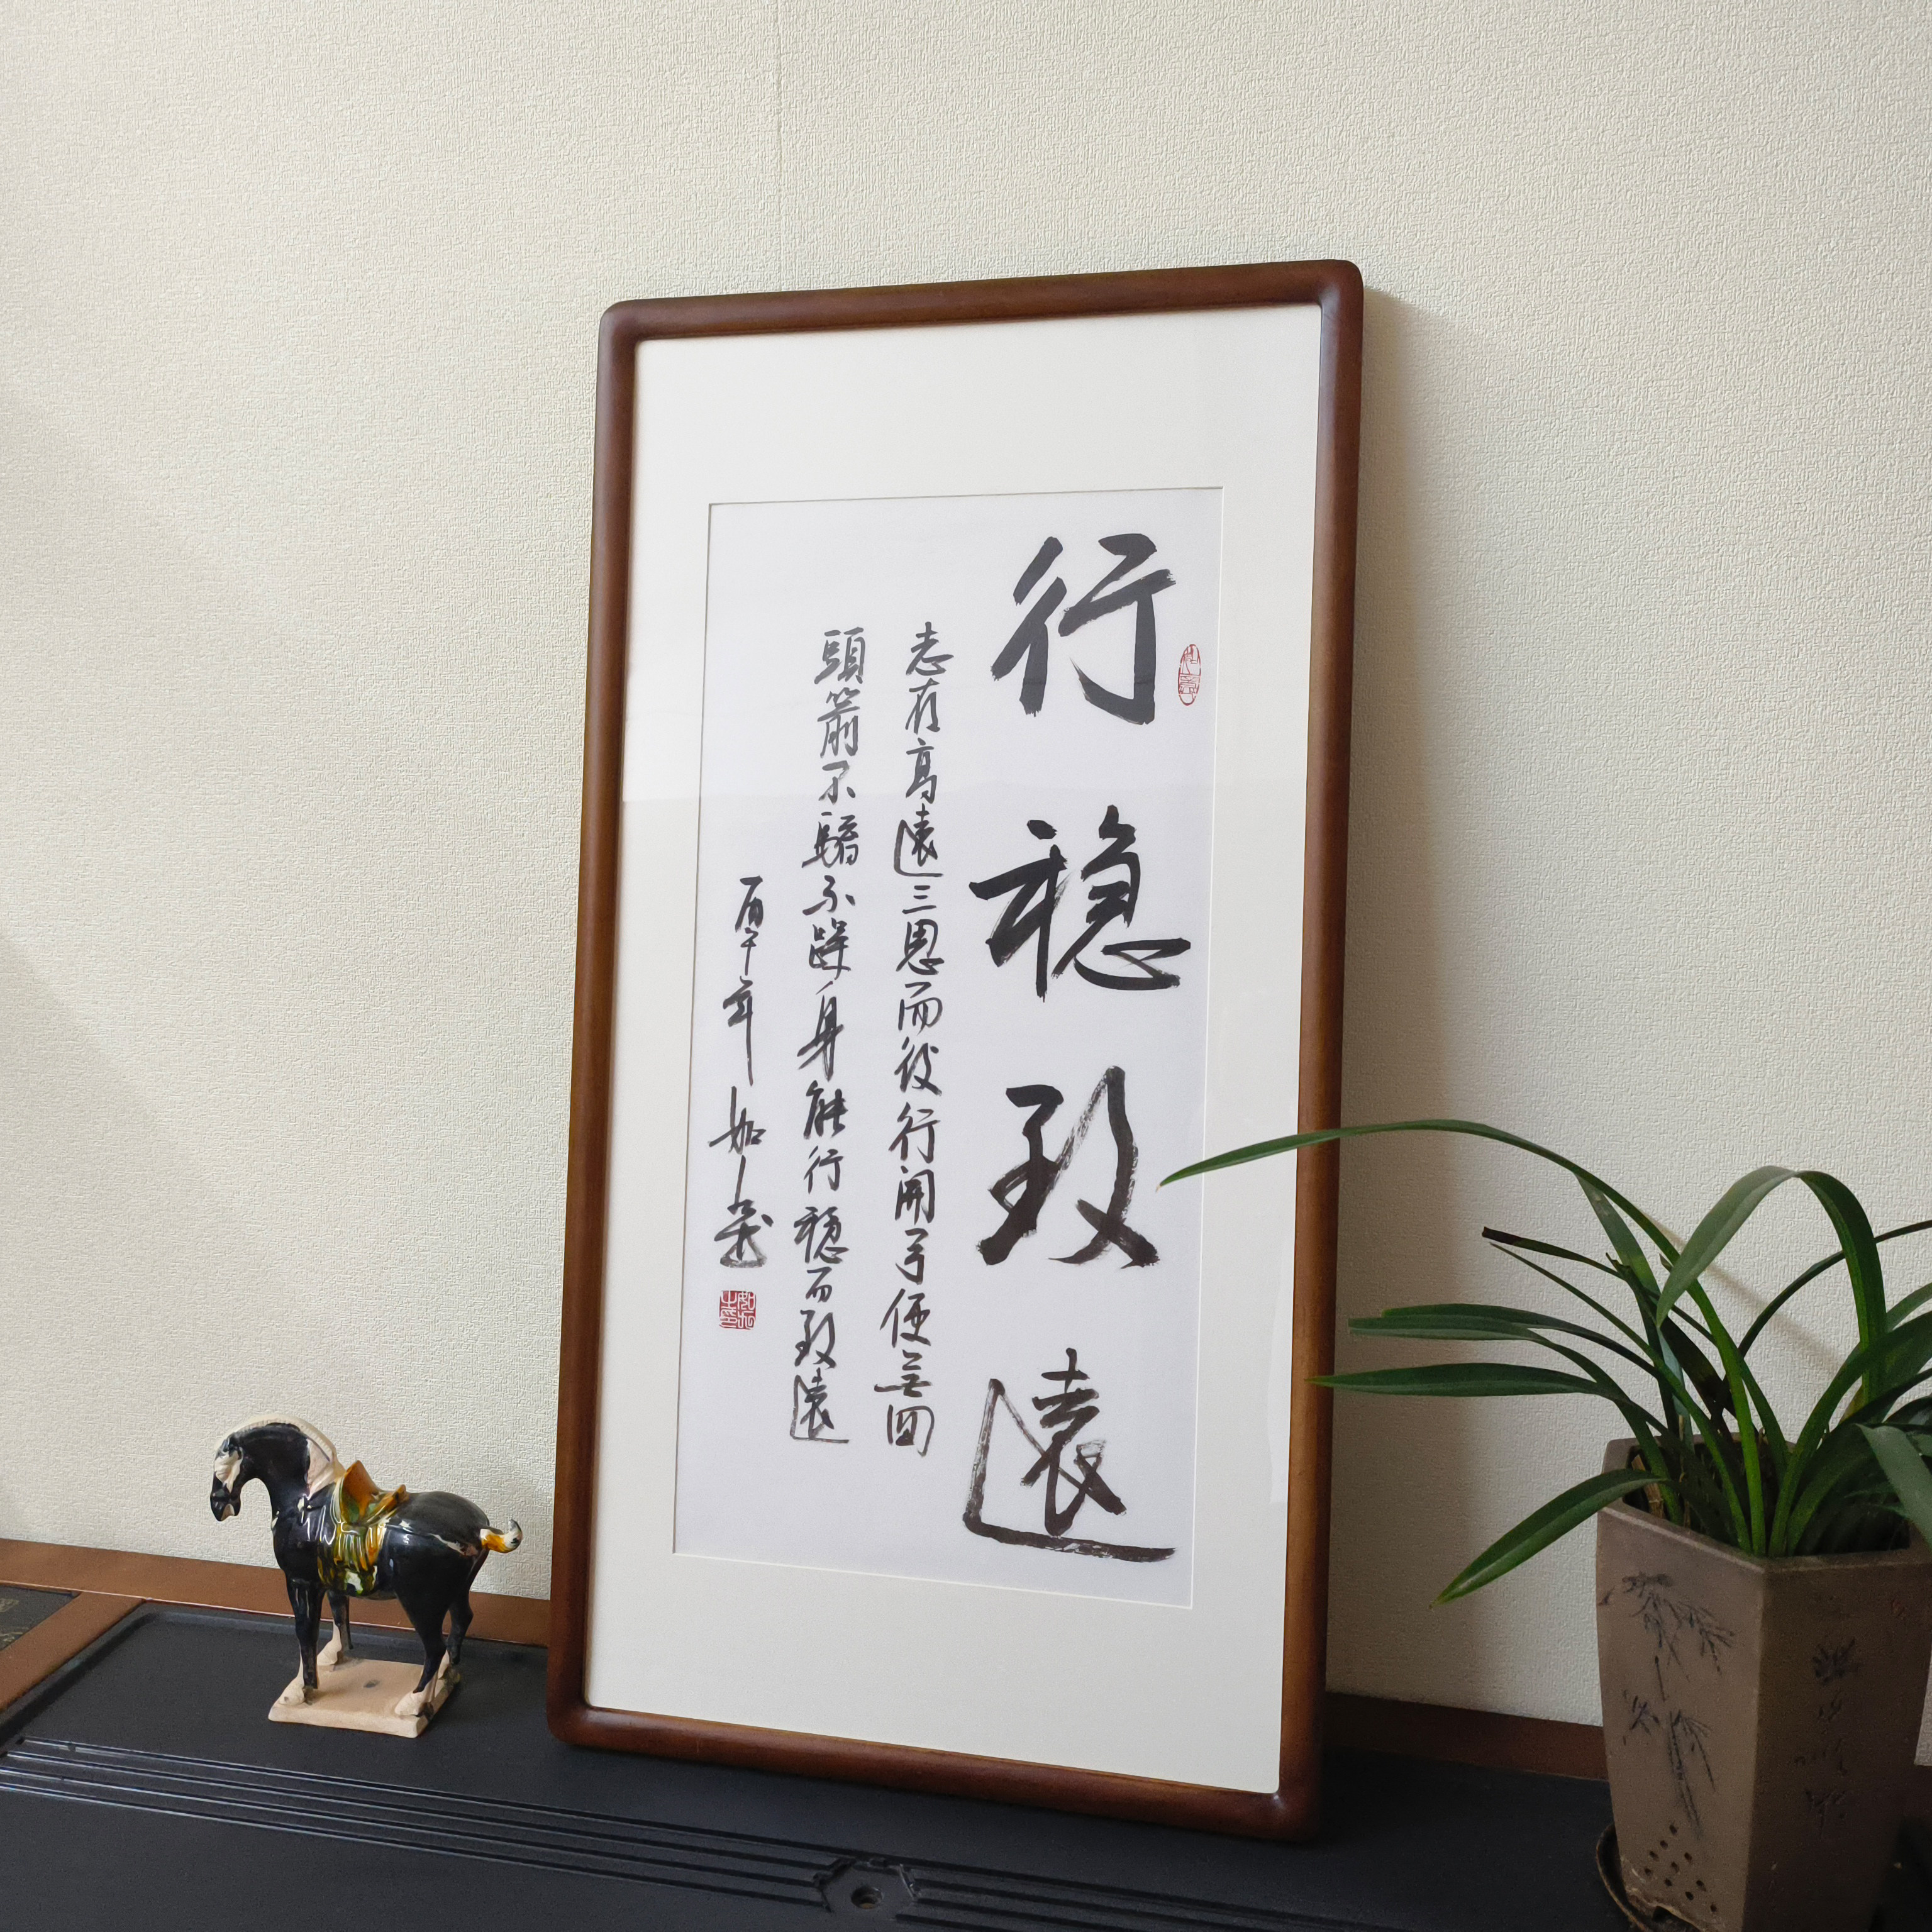 行稳致遠
志存高遠三思而後行開弓便無回
頭箭不驕不躁身能行稳而致遠
年如
如意